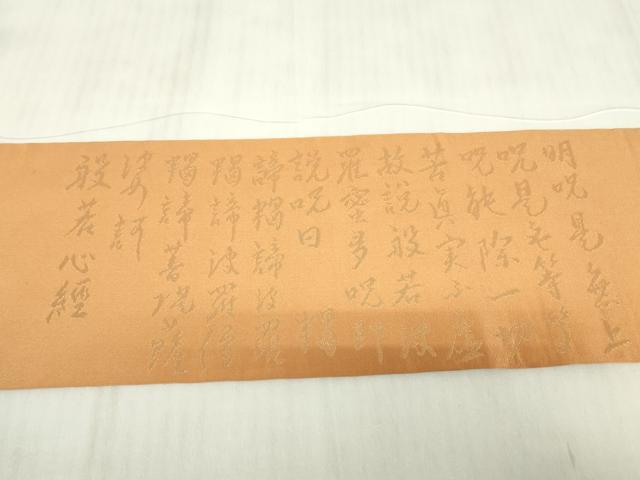 明呪是無上
呪是无等等
呪能除一切
苦眞実不虛
故說般若波
羅蜜多呪即
說呪曰 羯
諦羯諦波羅
羯諦波羅僧
羯諦菩提薩
婆訶
般若心經